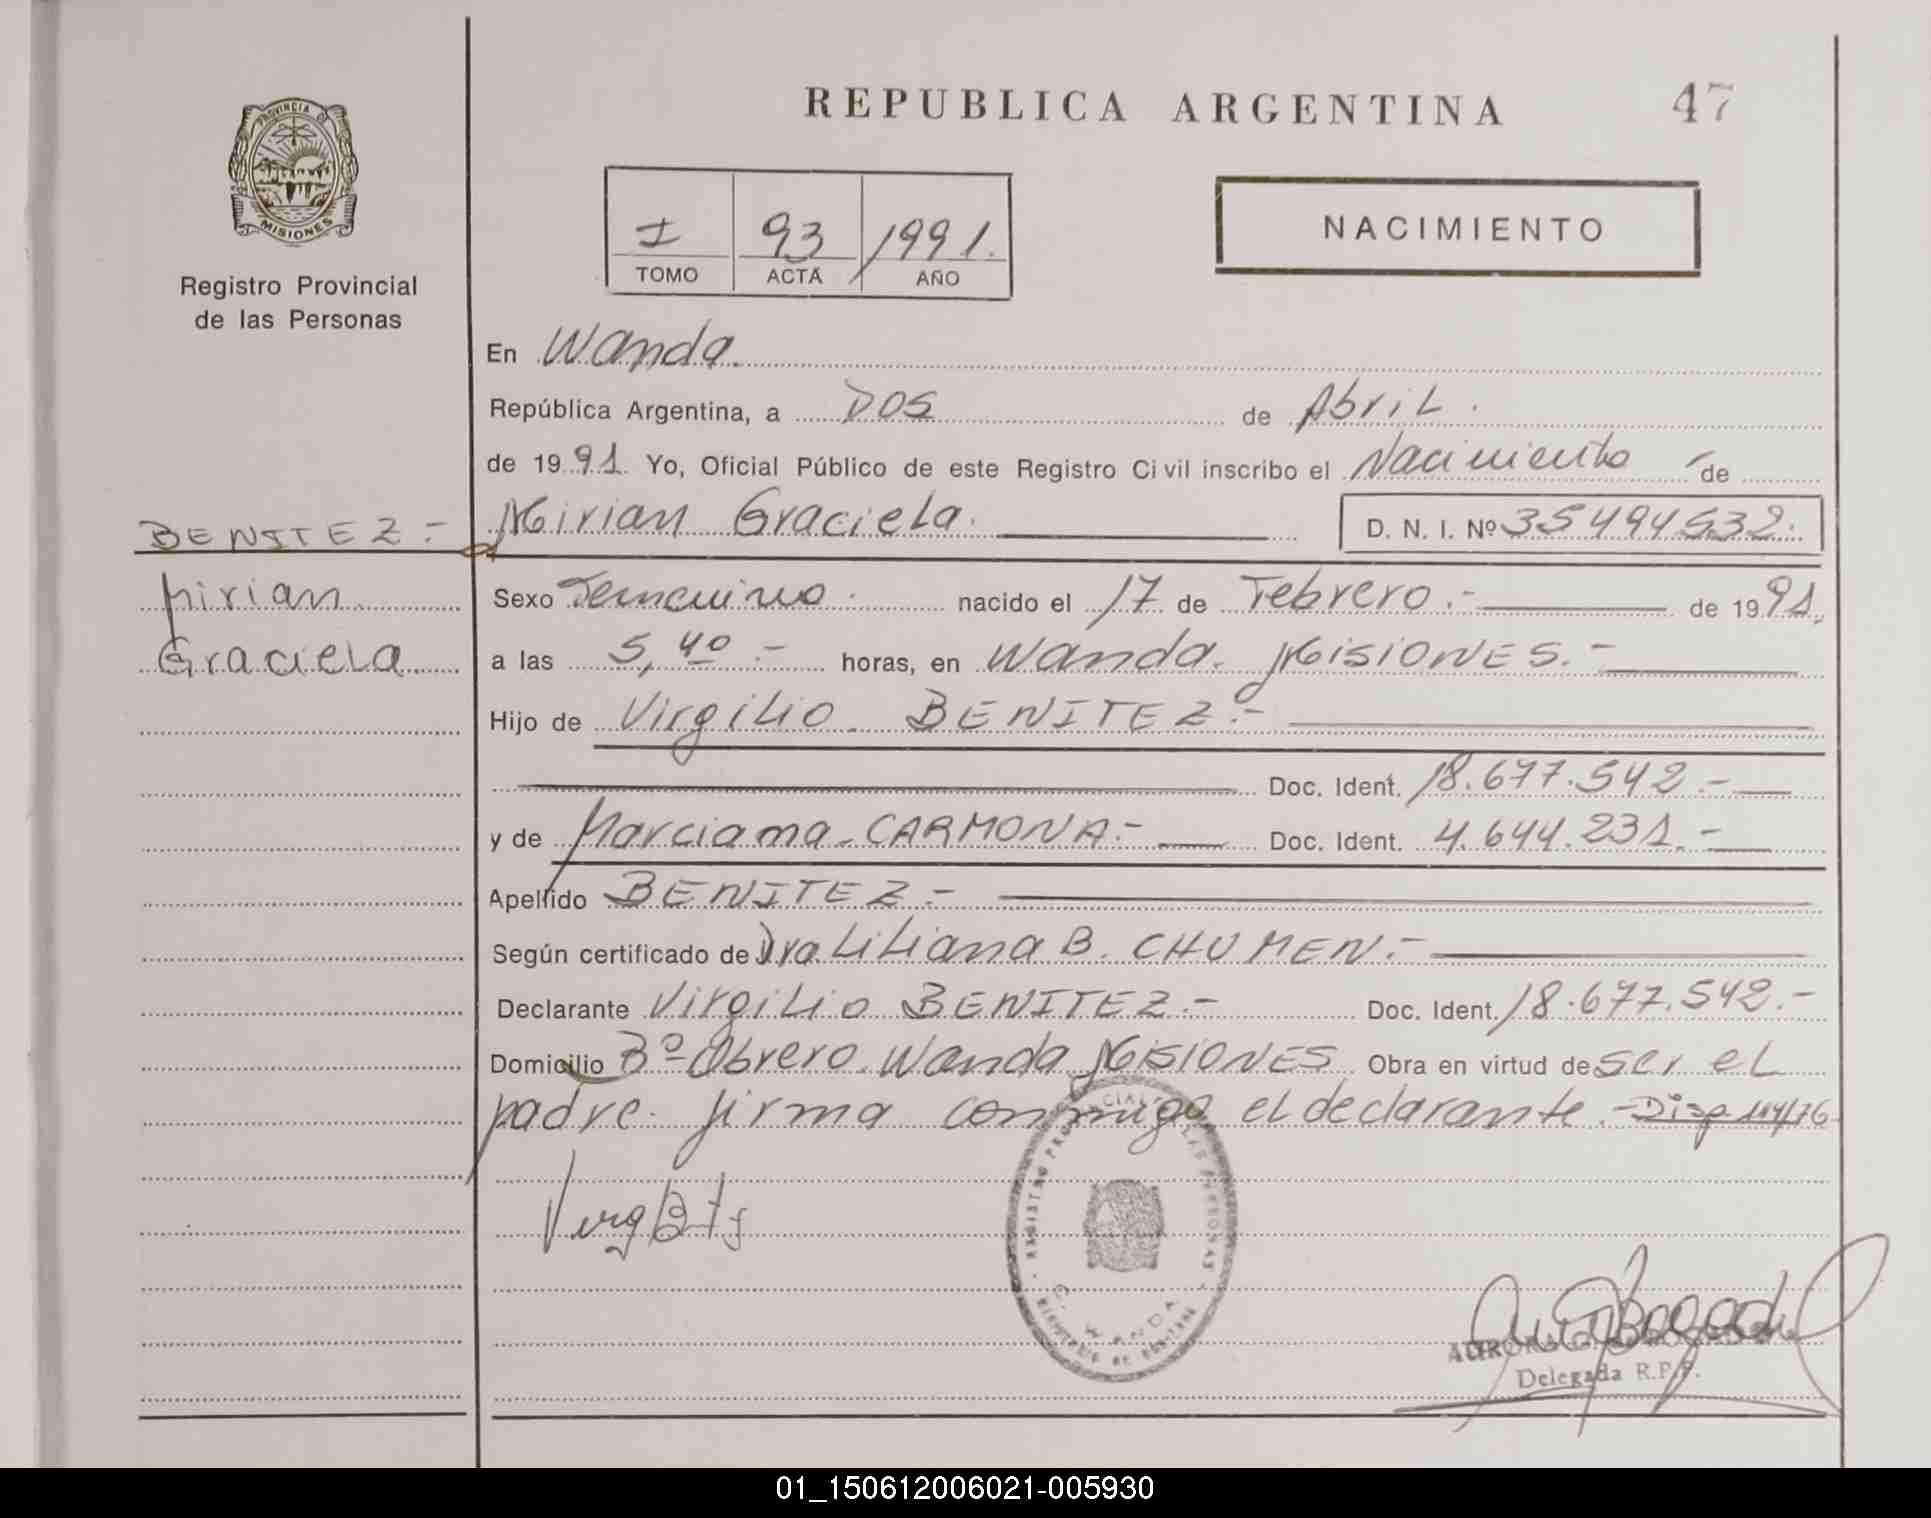 REPUBLICA ARGENTINA
47
PROVINCIA DE MISIONES
Registro Provincial
de las Personas
I 93 1991.
TOMO ACTA AÑO
NACIMIENTO
En Wanda.
República Argentina, a Dos de Abril.
de 1991 Yo, Oficial Público de este Registro Civil inscribo el Nacimiento de
BENITEZ.-
Mirian Graciela. D. N. I. Nº 35494532.
Mirian
Graciela
Sexo Femenino. nacido el 17 de Febrero.- de 1991,
a las 5,40.- horas, en Wanda. MISIONES.-
Hijo de Virgilio BENITEZ.-
Doc. Ident. 18.677.542.-
y de Marciana CARMONA.- Doc. Ident. 4.644.231.-
Apellido BENITEZ.-
Según certificado de Dra Liliana B. CHUMEN.-
Declarante Virgilio BENITEZ.- Doc. Ident. 18.677.542.-
Domicilio Bº Obrero. Wanda MISIONES Obra en virtud de ser el
padre. firma conmigo el declarante.- Disp.
REGISTRO PROVINCIAL DE LAS PERSONAS
WANDA
Delegada R.P.P.
01_150612006021-005930